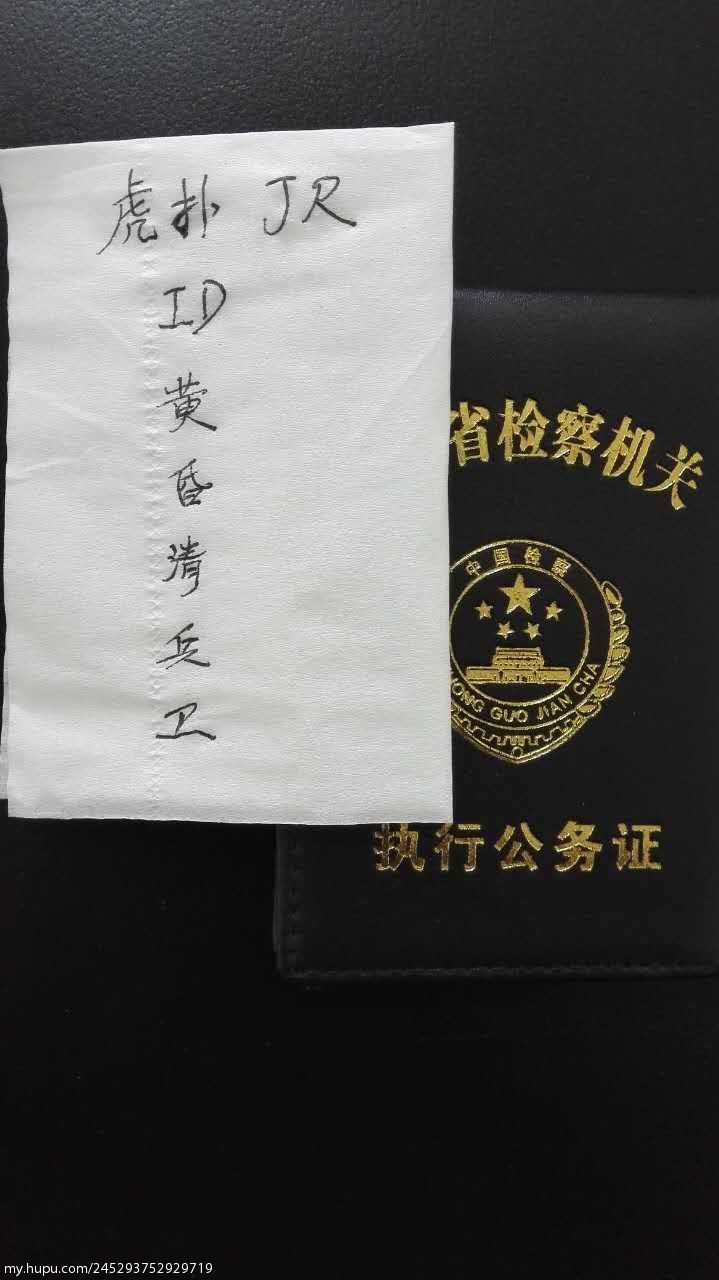 虎扑 JR
ID
黄
昏
清
兵
卫
省检察机关
中国检察
HONG GUO JIAN CHA
执行公务证
my.hupu.com/245293752929719